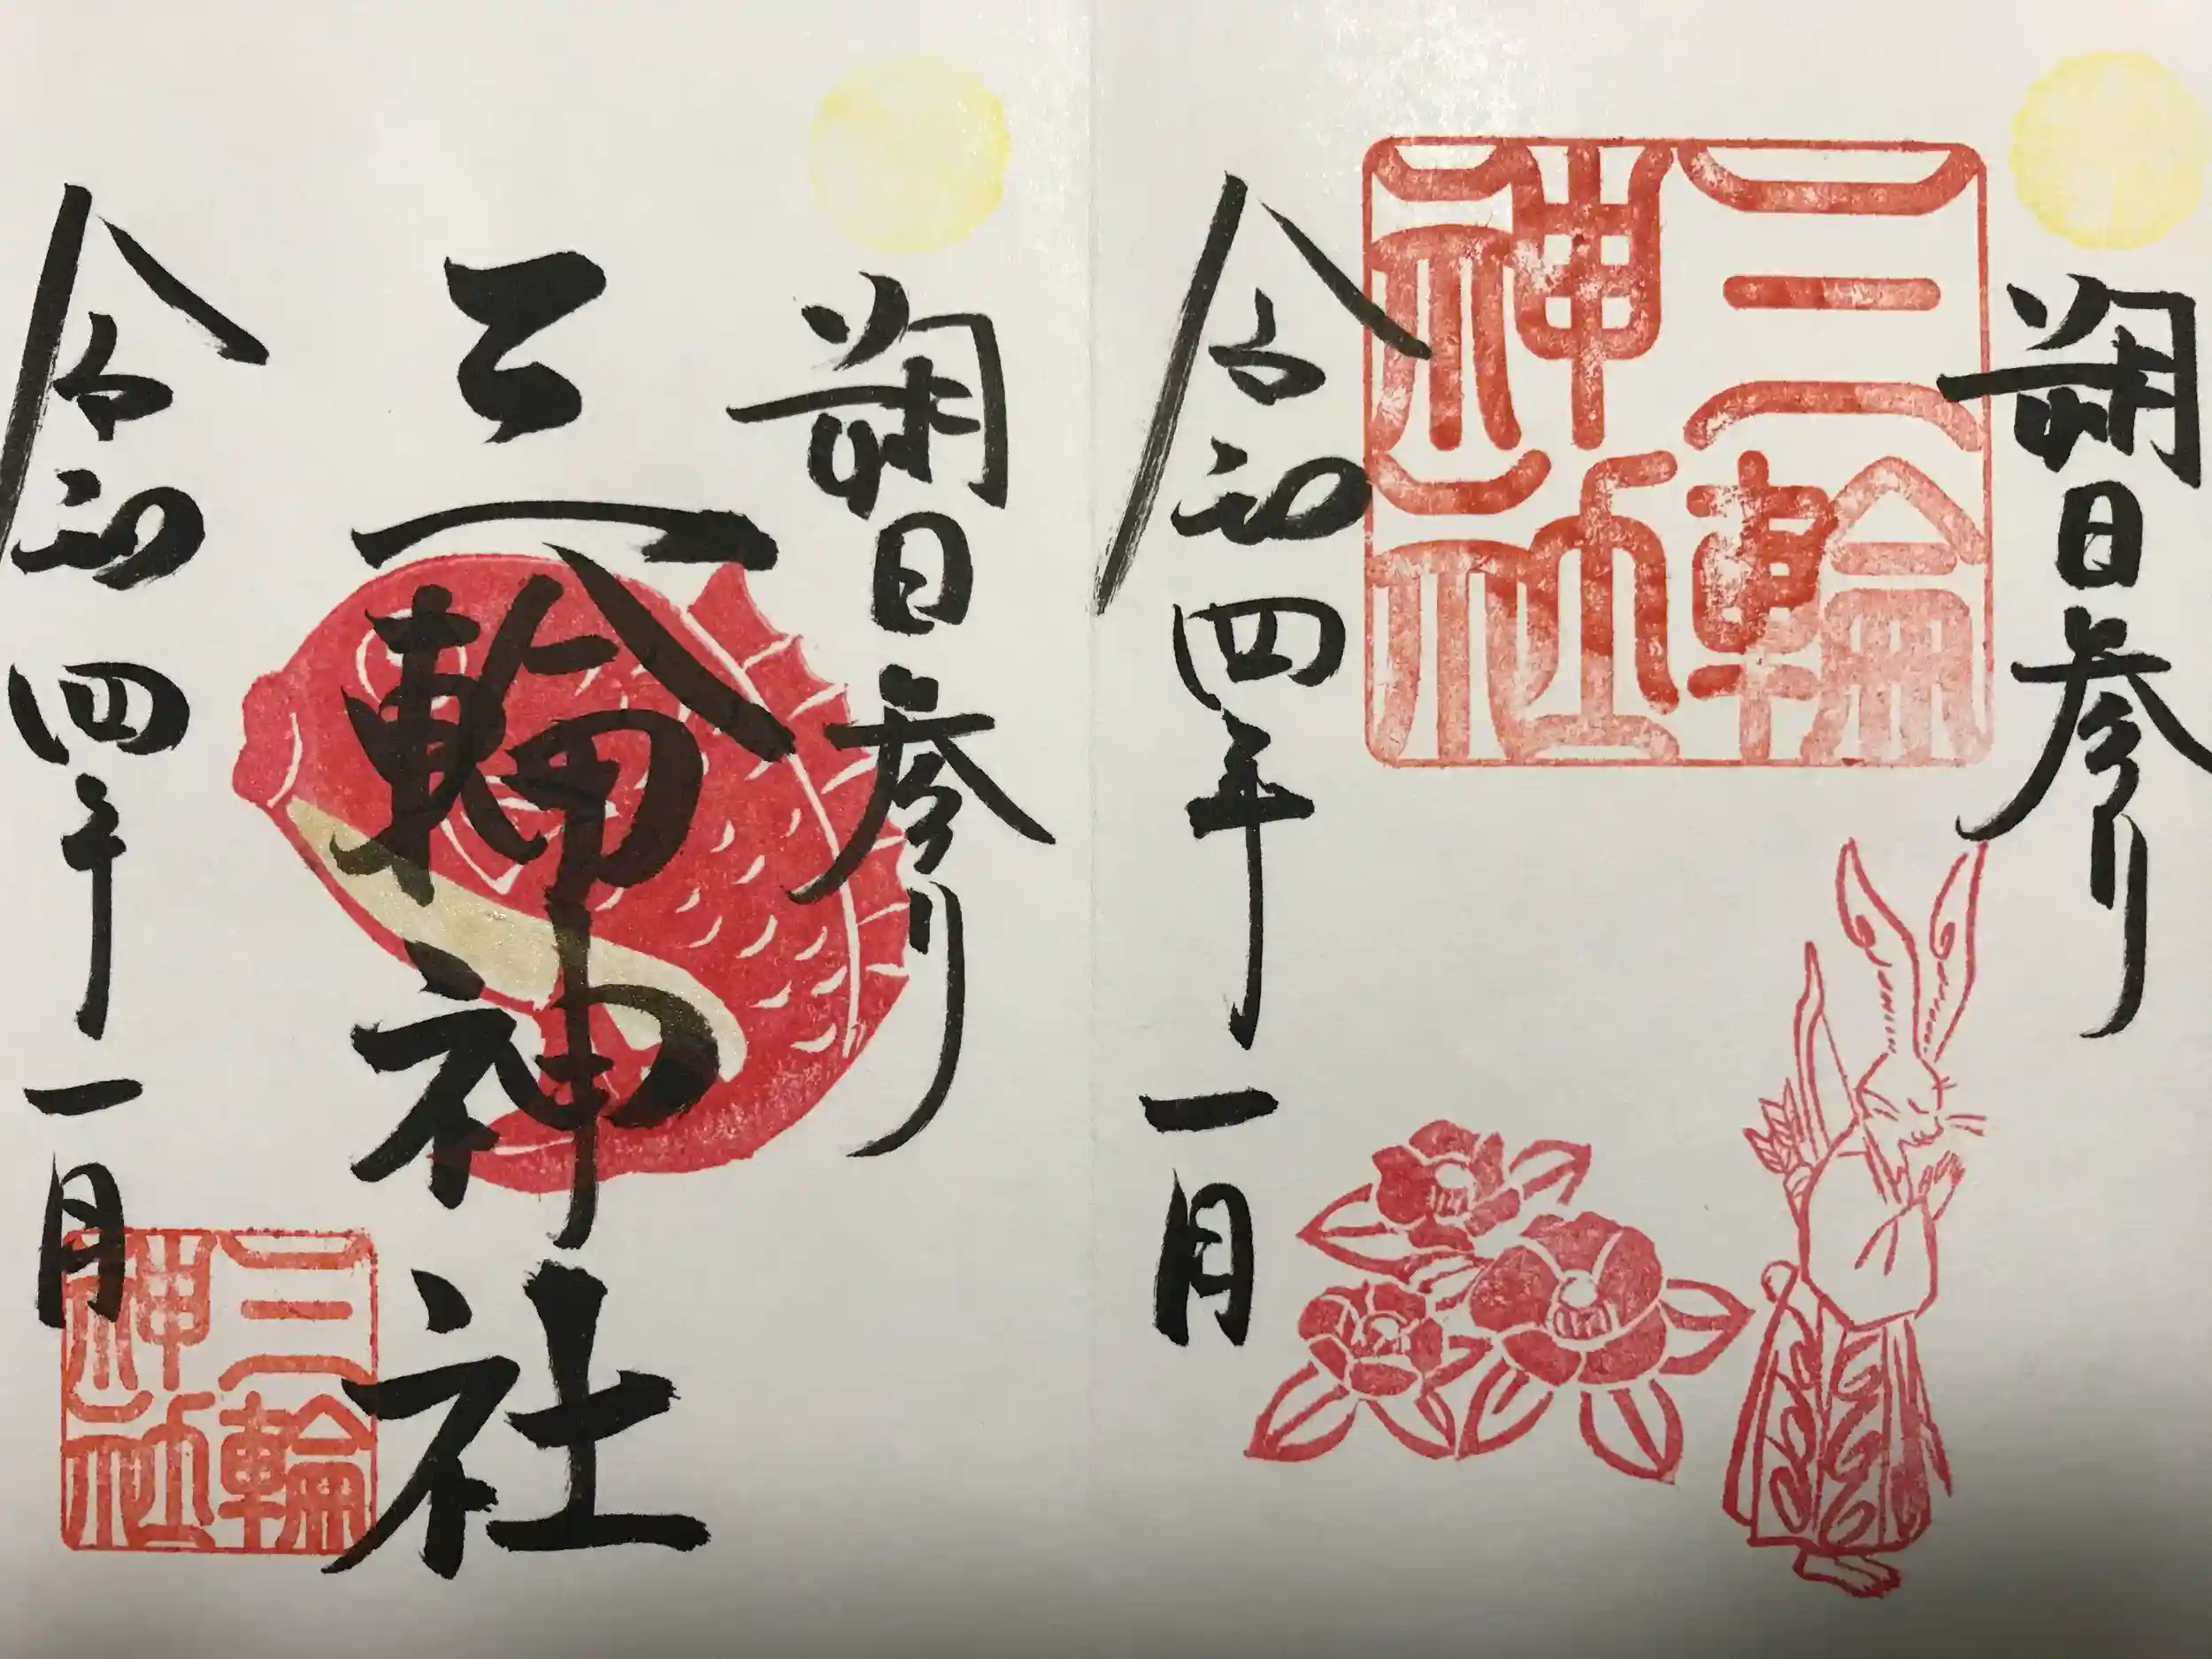 朔日参り
三輪神社
令和四年一月
朔日参り
三輪神社
令和四年一月
三輪神社